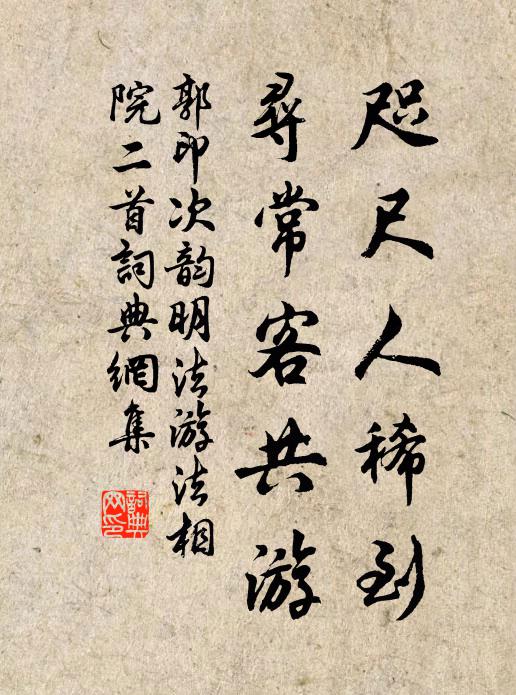 咫尺人稀到
尋常客共游
郭印次韵明法游法相
院二首詞典網集
詞典网印